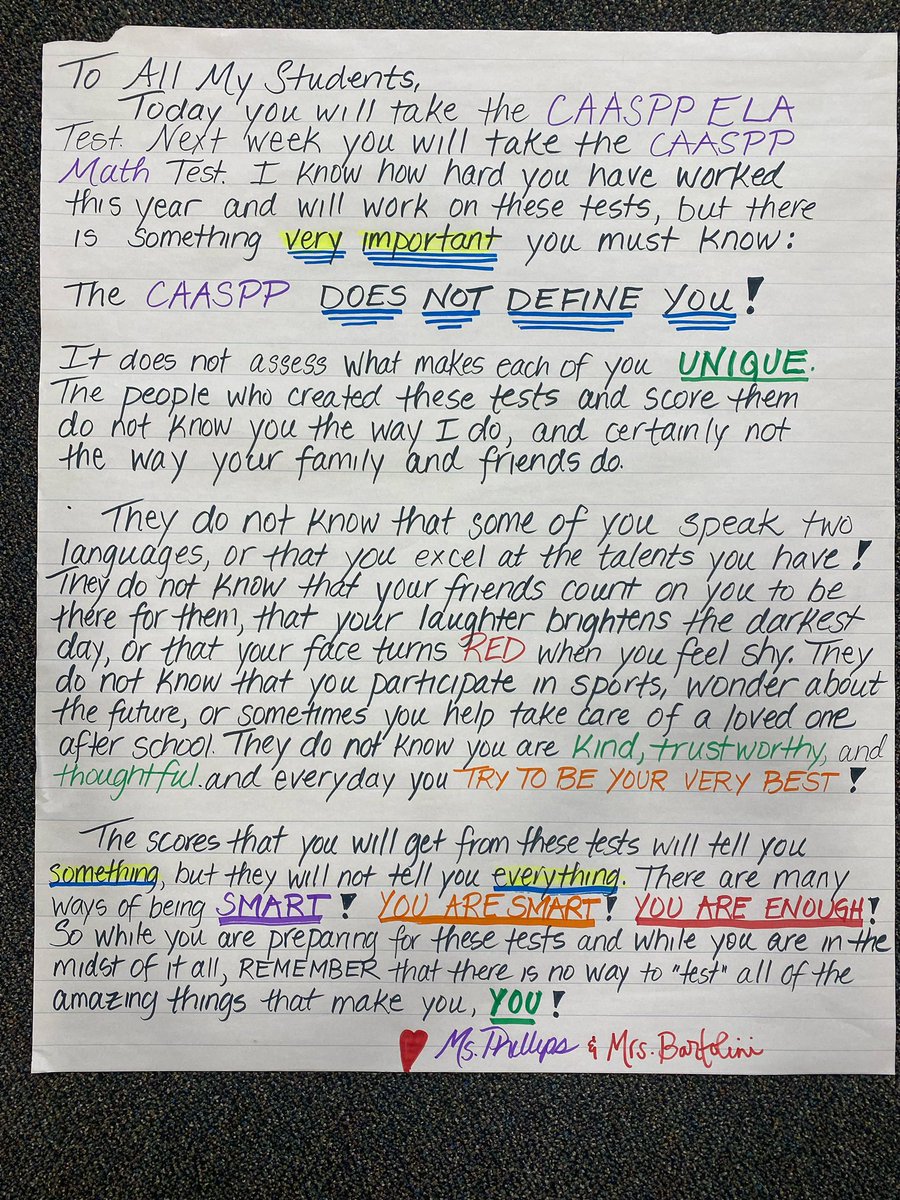 To All My Students,
Today you will take the CAASPP ELA
Test. Next week you will take the CAASPP
Math Test. I know how hard you have worked
this year and will work on these tests, but there
is something very important you must know:
The CAASPP DOES NOT DEFINE YOU!
It does not assess what makes each of you UNIQUE.
The people who created these tests and score them
do not know you the way I do, and certainly not
the way your family and friends do.
They do not know that some of you speak two
languages, or that you excel at the talents you have!
They do not know that your friends count on you to be
there for them, that your laughter brightens the darkest
day, or that your face turns RED when you feel shy. They
do not know that you participate in sports, wonder about
the future, or sometimes you help take care of a loved one
after school. They do not know you are kind, trustworthy, and
thoughtful. and everyday you TRY TO BE YOUR VERY BEST!
The scores that you will get from these tests will tell you
something, but they will not tell you everything. There are many
ways of being SMART! YOU ARE SMART! YOU ARE ENOUGH!
So while you are preparing for these tests and while you are in the
midst of it all, REMEMBER that there is no way to "test" all of the
amazing things that make you, YOU!
Ms. Phillips & Mrs. Bartolini